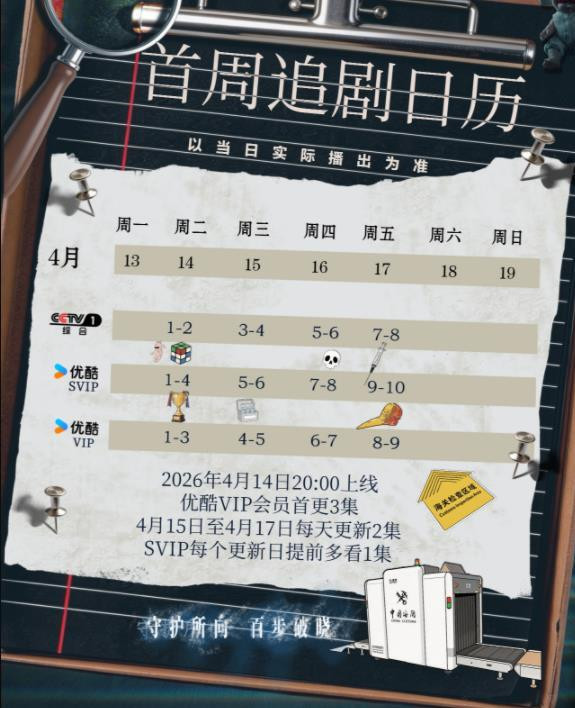 首周追剧日历
以当日实际播出为准
周一 周二 周三 周四 周五 周六 周日
4月 13 14 15 16 17 18 19
CCTV 1 综合 1-2 3-4 5-6 7-8
优酷 SVIP 1-4 5-6 7-8 9-10
优酷 VIP 1-3 4-5 6-7 8-9
2026年4月14日20:00上线
优酷VIP会员首更3集
4月15日至4月17日每天更新2集
SVIP每个更新日提前多看1集
海关检查区域
Customs Inspection Area
中国海关
CHINA CUSTOMS
守护所向 百步破晓